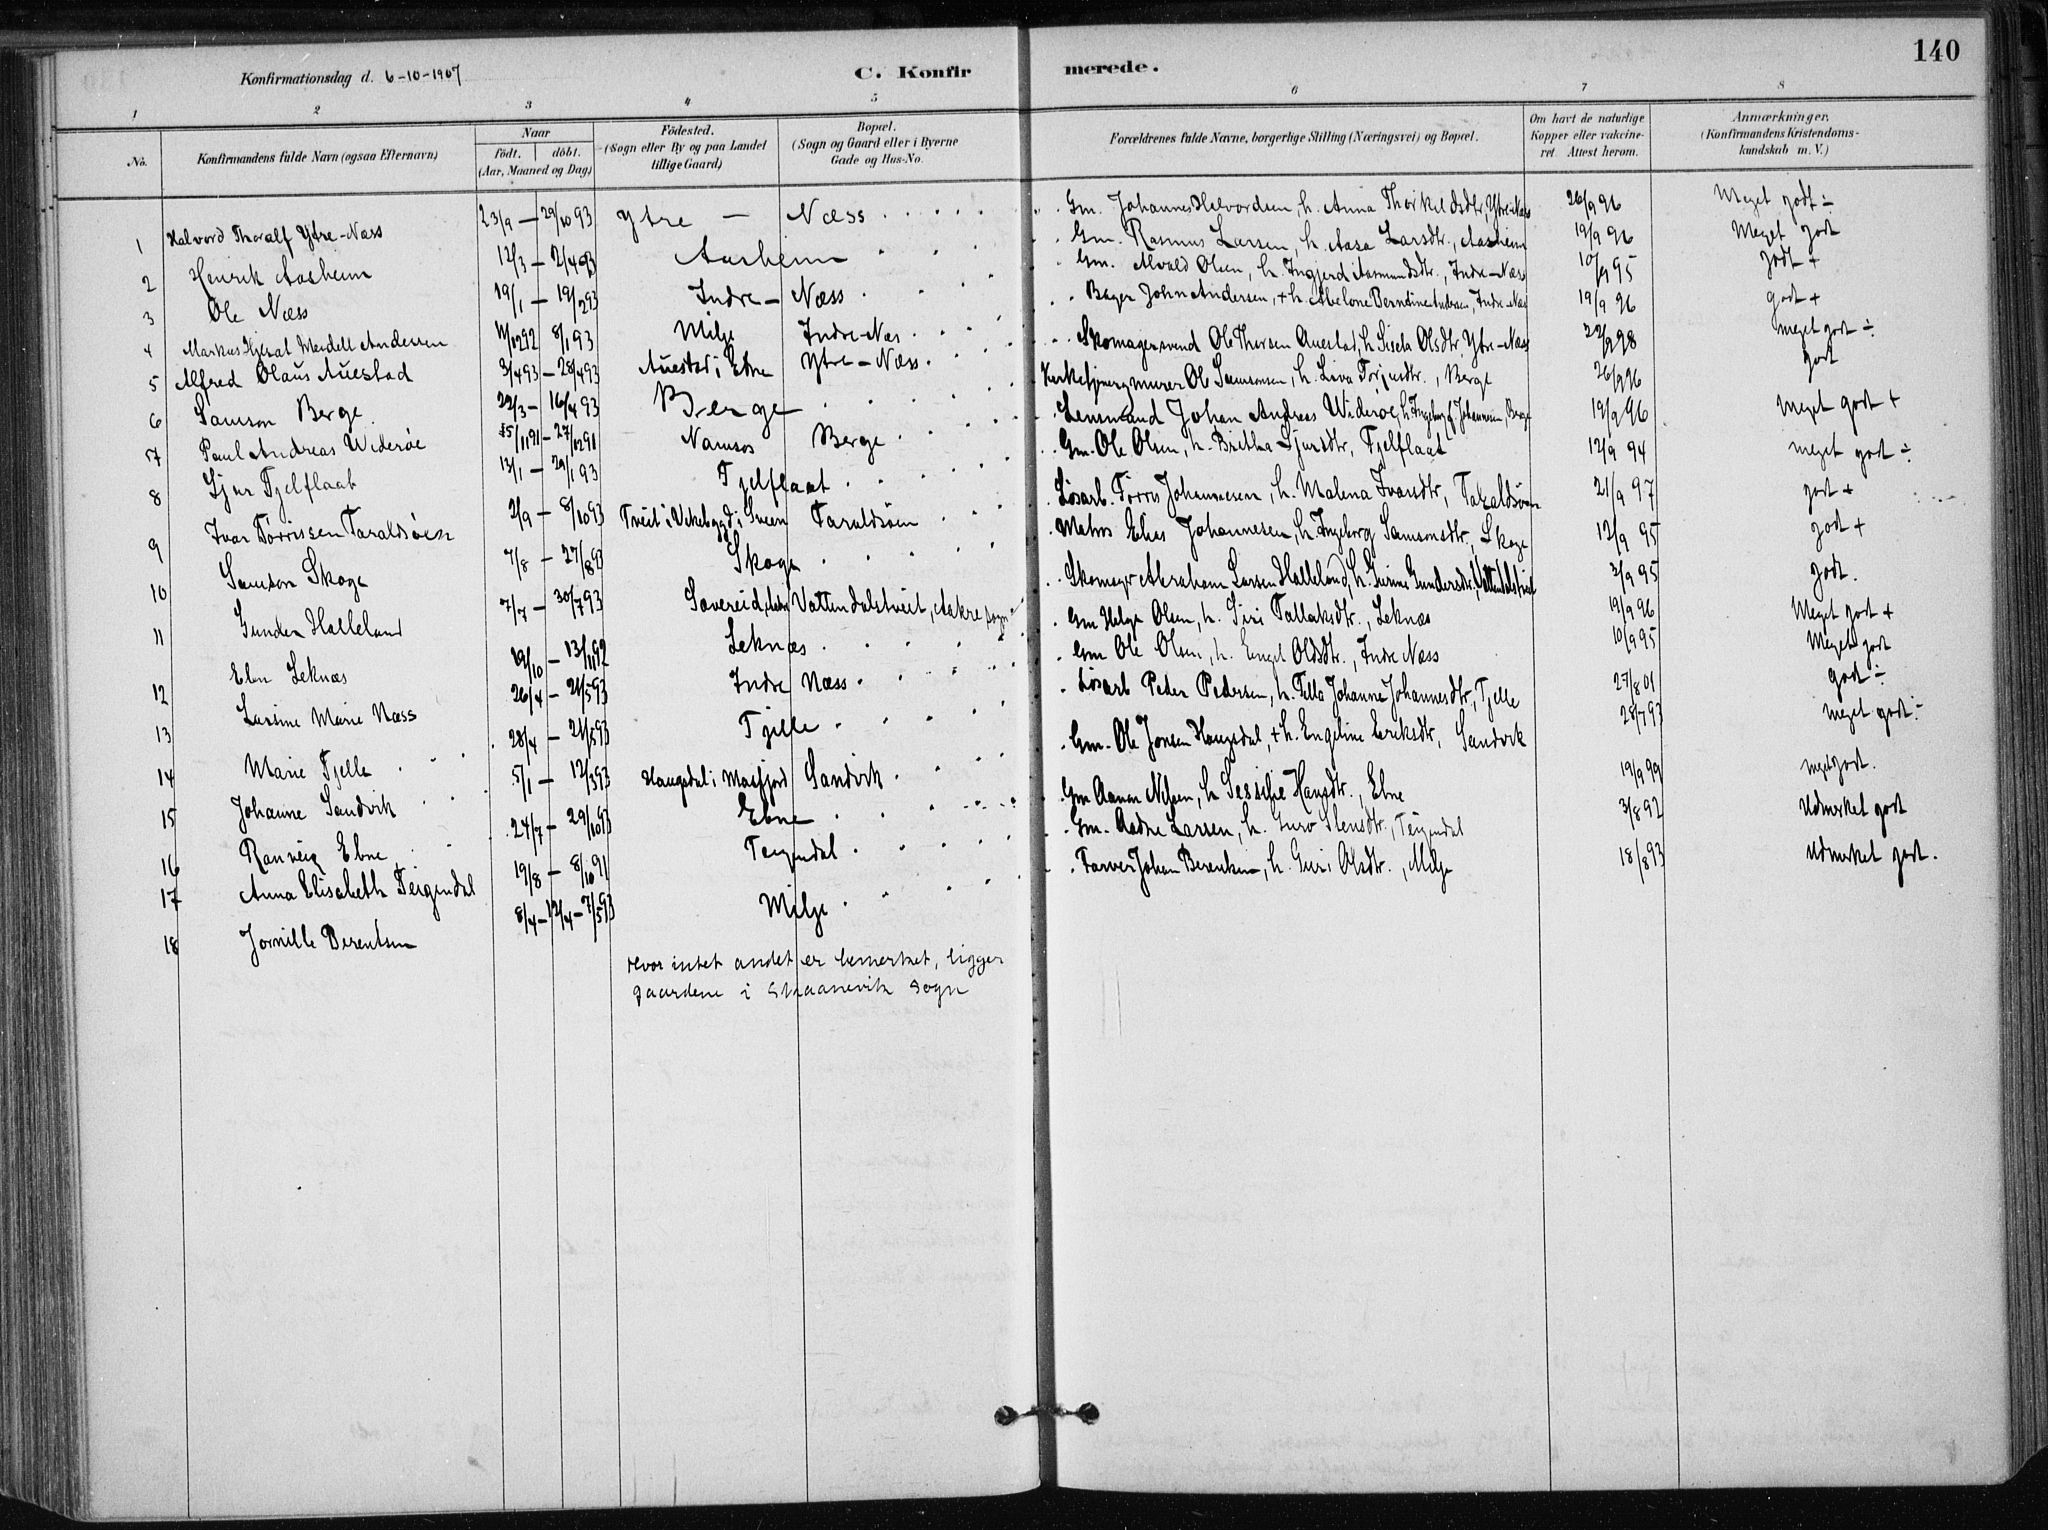 140
Konfirmationsdag d. 6-10-1907 C. Konfirmerede.
1 2 3 4 5 6 7 8
No. Konfirmandens fulde Navn (ogsaa Efternavn) Naar födt. döbt. (Aar, Maaned og Dag) Födested. (Sogn eller By og paa Landet tillige Gaard) Bopæl. (Sogn og Gaard eller i Byerne Gade og Hus-No. Forældrenes fulde Navne, borgerlige Stilling (Næringsvei) og Bopæl. Om havt de naturlige Kopper eller vakcineret. Attest herom. Anmærkninger. (Konfirmandens Kristendomskundskab m. V.)
1 Halvord Thoralf Ytre-Næss 23/9 — 29/10 93 Ytre — Næss Gm. Johannes Halvordsen, h. Anna Thorkildsdtr, Ytre-Næss 26/9 96 Meget godt ÷
2 Henrik Aasheim 12/3 — 2/4 93 Aasheim Gm. Rasmus Larsen, h. Aasa Larsdtr., Aasheim 19/9 96 Meget godt
3 Ole Næss 19/1 — 19/2 93 Indre — Næss Gm. Alvald Olsen, h. Ingjerd Aasmundsdtr., Indre-Næss 10/9 95 godt +
4 Markus Mendell Andersen 11/12 92 8/1 93 Milje Indre-Næs Bager John Andersen, + h. Abelone Berndine Andersen, Indre-Næs 19/9 96 godt +
5 Alfred Olaus Auestad 3/4 93 — 28/4 93 Auestad i Ebne Ytre-Næss Skomagersvend Ole Thorsen Auestad, h. Sisela Olsdtr, Ytre-Næss 22/9 98 meget godt ÷
6 Samson Berge 29/3 — 16/4 93 Berge murer Ole Samsonsen, h. Liva Torjusdtr., Berge 26/9 96 godt
7 Paul Andreas Wideröe 15/11 91 — 27/12 91 Namsos Berge Lensmand Johan Andreas Wideröe, h. Ingeborg f. Johannesen, Berge 19/9 96 Meget godt +
8 Sjur Fjelflaat 13/1 — 29/1 93 Fjelflaat Gm. Ole Olsen, h. Britha Sjursdtr, Fjelflaat 12/9 94 meget godt ÷
9 Ivar Törrissen Taraldsöen 2/9 — 8/10 93 Tveit i Vikebygd i Sveen Taraldsöen Lösarb. Törris Johannesen, h. Malena Ivarsdtr, Taraldsöen 21/9 97 godt +
10 Samson Skoge 7/8 — 27/8 93 Skoge Matros Elias Johannesen, h. Ingeborg Samsonsdtr., Skoge 12/9 95 godt +
11 Gunder Halleland 7/7 — 30/7 93 Vattendalstveit, Aakre sogn Skomager Abraham Larsen Halleland, h. Gurine Gundersdtr, Vattendalstveit 3/9 95 godt.
12 Eben Leknæs 19/10 — 13/11 92 Leknæs Gm Helge Olsen, h. Siri Tallaksdtr., Leknæs 19/9 96 Meget godt +
13 Larsine Marie Næss 26/4 — 21/5 93 Indre Næss Gm Ole Olsen, h. Engel Olsdtr., Indre Næss 10/9 95 Meget godt
14 Marie Fjelle 28/4 — 21/5 93 Fjelle Lösarb Peder Pedersen, h. Tella Johanne Johannesdtr, Fjelle 27/8 01 godt ÷
15 Johanne Sandvik 5/1 — 12/3 93 Haugsdal i Masfjord Sandvik Gm. Ole Jonsen Haugsdal, + h. Engeline Eriksdtr, Sandvik 28/7 93 meget godt ÷
16 Ranveig Ebne 24/7 — 29/10 93 Ebne Gm Aanon Nilsen, h. Sessilie Hansdtr., Ebne 19/9 99 meget godt.
17 Anna Elisabeth Teigendal 19/8 — 8/10 91 Teigendal Gm. Aadne Larsen, h. Guro Stensdtr., Teigendal 3/8 92 Udmerket godt
18 Jornille Berentsen 8/4 — 12/4 — 7/5 93 Milje Farver Johan Berentsen, h. Guri Olsdtr., Milje 18/8 93 Udmerket godt.
Hvor intet andet er bemerket, ligger
gaardene i Skaanevik sogn